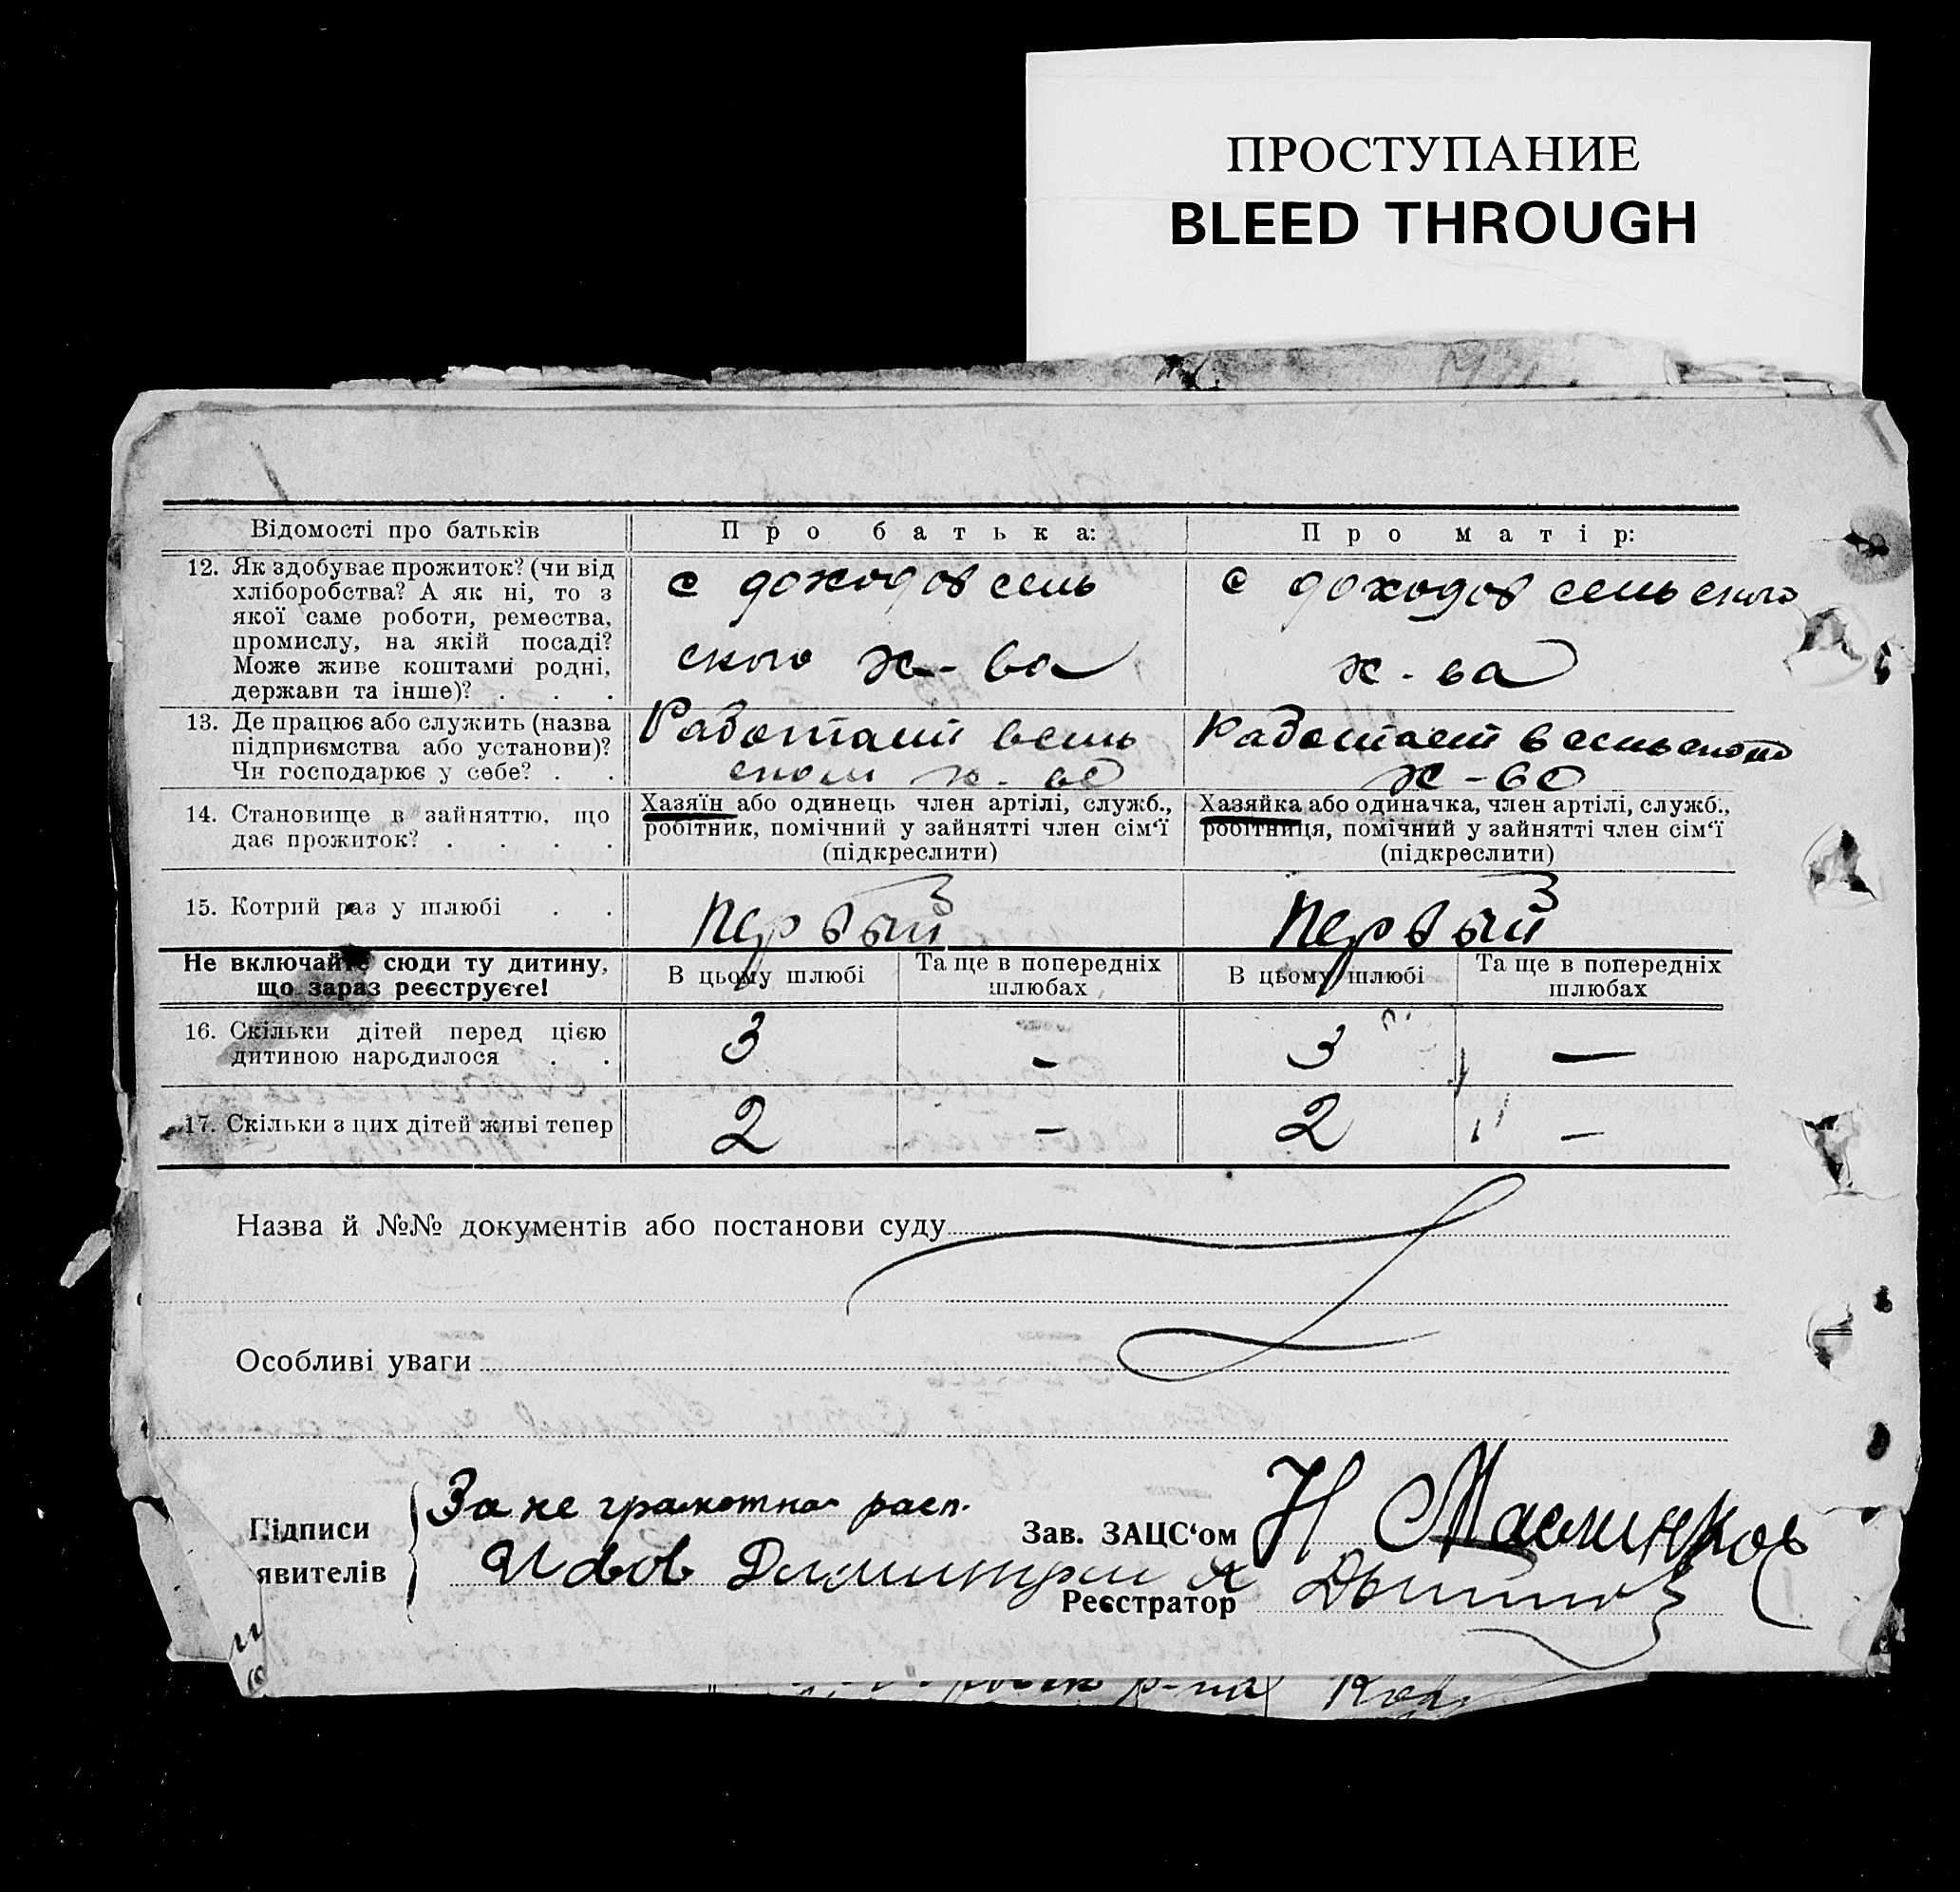 ПРОСТУПАНИЕ
BLEED THROUGH
Відомості про батьків
Про батька:
Про матір:
12. Як здобуває прожиток? (чи від
хліборобства? А як ні, то з
якої саме роботи, ремества,
промислу, на якій посаді?
Може живе коштами родні,
держави та інше)? . . .
с доходов сель
ского х-ва
с доходов сельского
х-ва
13. Де працює або служить (назва
підприємства або установи)?
Чи господарює у себе? . .
Работает в сель
ском х-ве
Работает в сельском
х-ве
14. Становище в зайняттю, що
дає прожиток? . . . .
Хазяїн або одинець член артілі, служб.,
робітник, помічний у зайнятті член сім‘ї
(підкреслити)
Хазяйка або одиначка, член артілі, служб.,
робітниця, помічний у зайнятті член сім‘ї
(підкреслити)
15. Котрий раз у шлюбі . .
первый
первый
Не включайте сюди ту дитину,
що зараз реєструєте!
В цьому шлюбі
Та ще в попередніх
шлюбах
В цьому шлюбі
Та ще в попередніх
шлюбах
16. Скільки дітей перед цією
дитиною народилося . .
3
-
3
-
17. Скільки з цих дітей живі тепер
2
-
2
-
Назва й №№ документів або постанови суду
Особливі уваги
Підписи
явителів
За не грамотная расп.
Зав. ЗАЦС‘ом
Н
Реєстратор
р-на